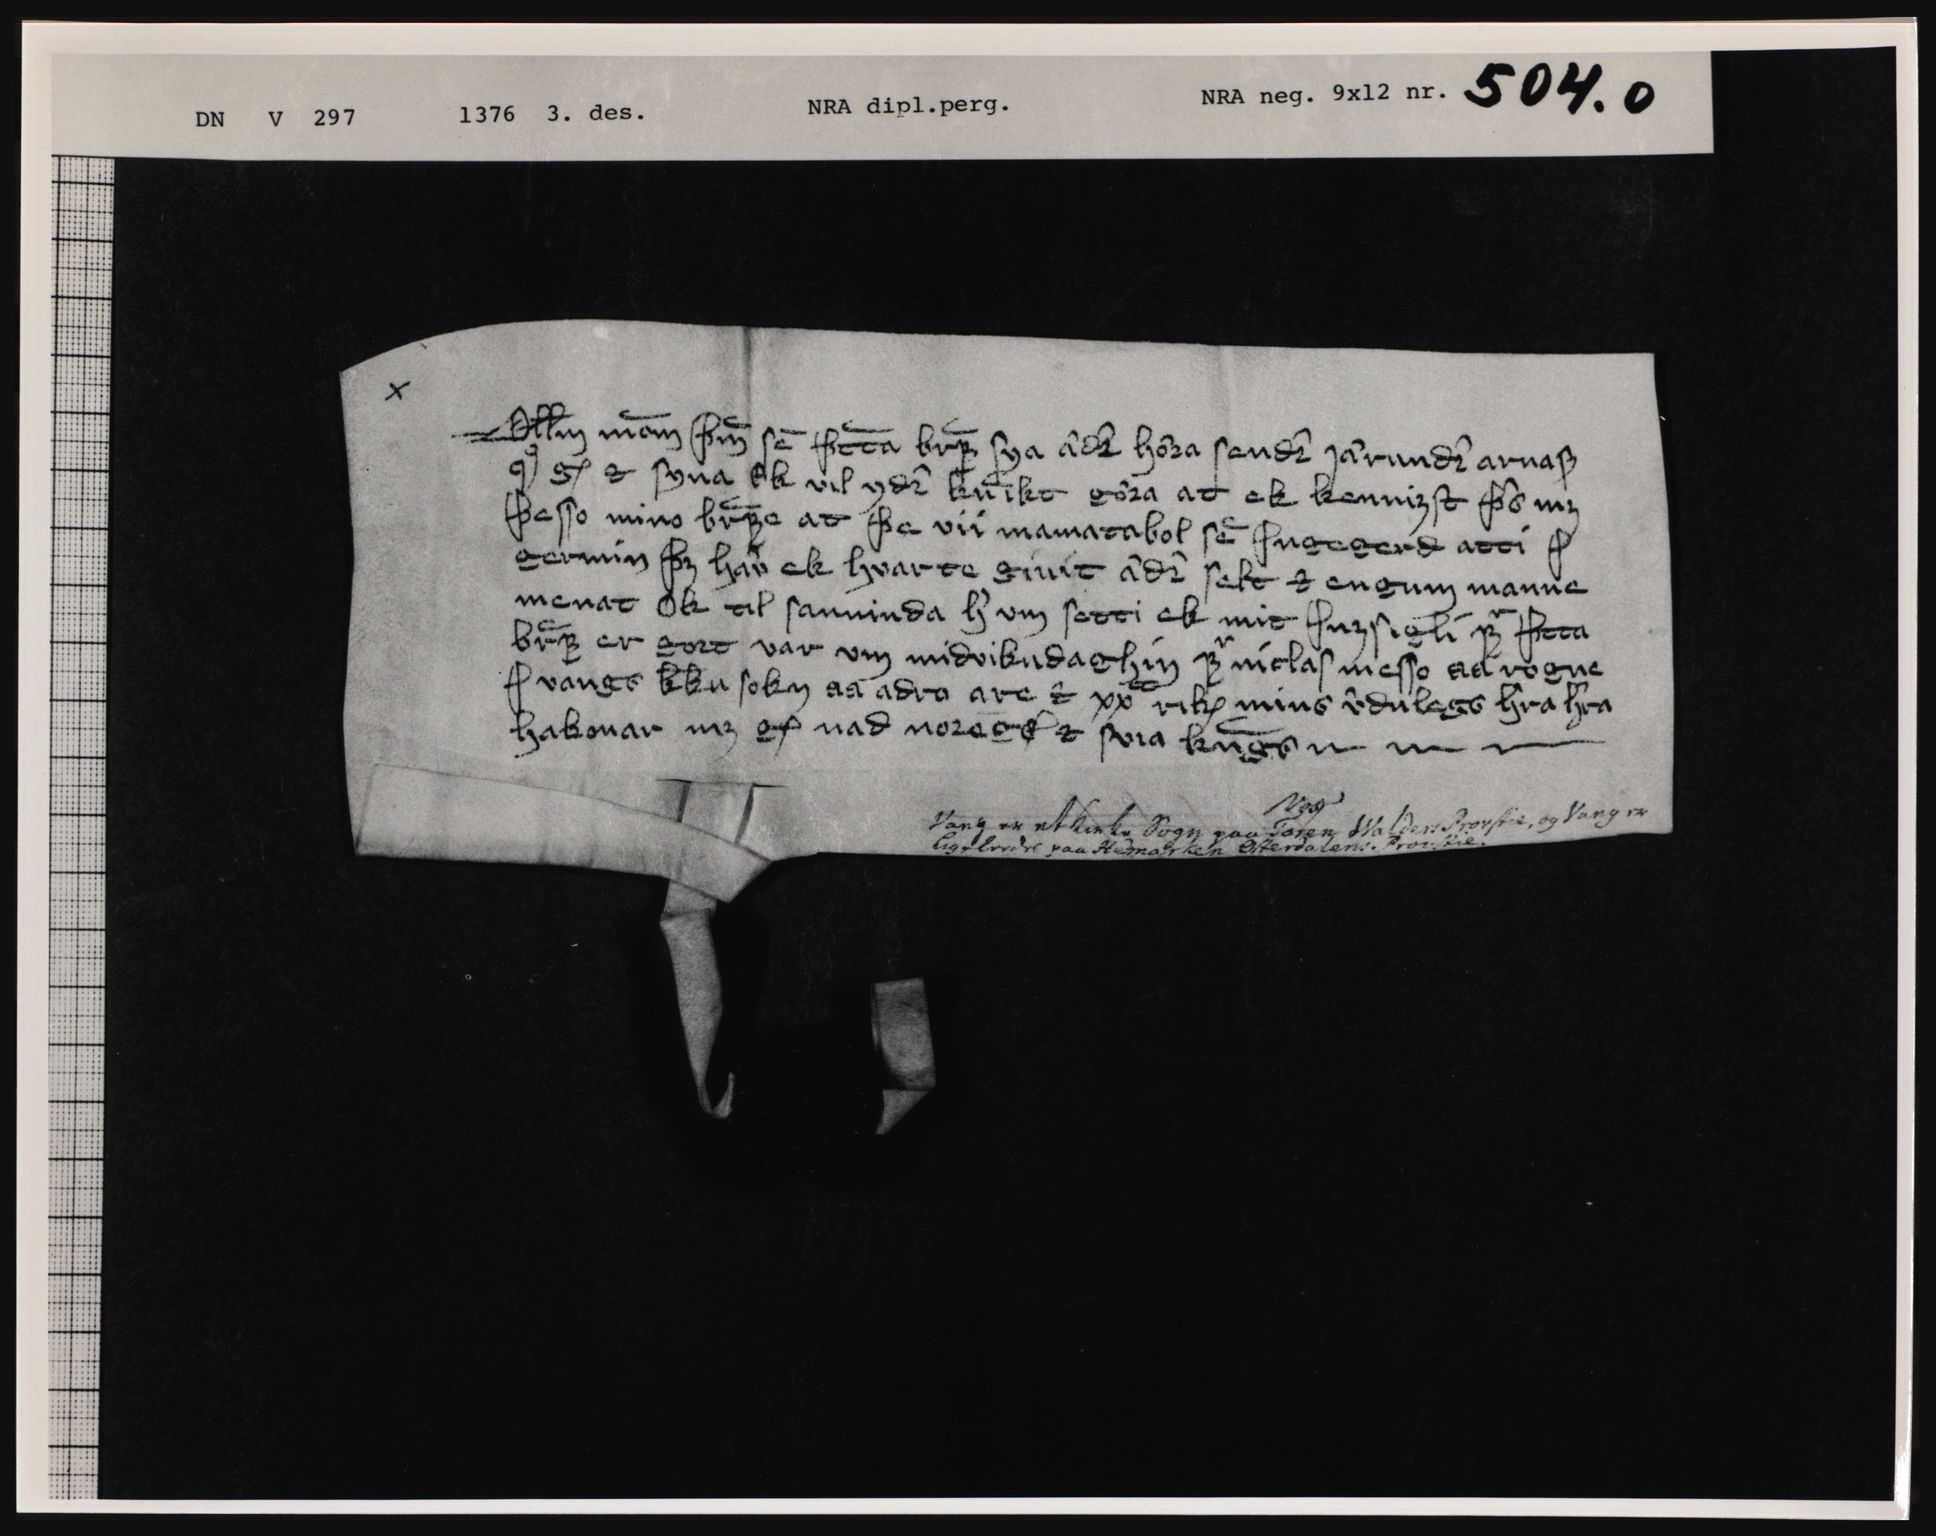 DN V 297 1376 3. des. NRA dipl.perg. NRA neg. 9x12 nr. 504.0
x
Ollm monm þm se þtta bref sya ædr hœra sendr jarundr arnas
q g ok syna Ok vil ydr kunikt gœra at ek kennizst þs mz
þesso mino brefe at þe vii mamatabol se Jngegerd atti j
germin þz hav ek huarte giuit ædr selt ok engum manne
menat Ok til sanninda h um setti ek mit Jnzsigli fr þtta
bref er gort var um miduikudaghin fr niclas messo aa rogne
j vangs kku sokn aa adro are ok xx rik mins vdulegs hra hra
hakonar mz g nad noregs ok suia kngs
Vang er et Sogn paa Toten, Walders Provstie, og Vang er
ligeledes paa Hemarken Østerdalens Provstie.